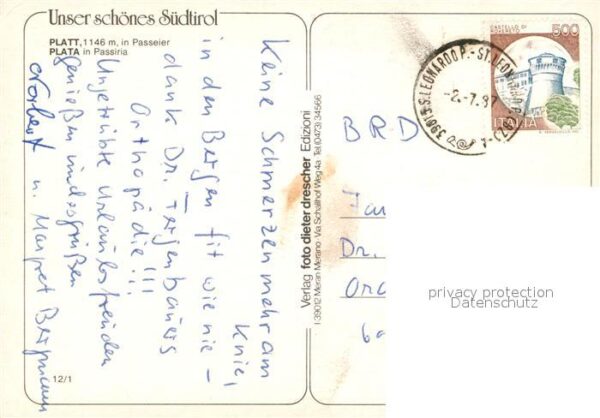 Unser schönes Südtirol
PLATT, 1146 m, in Passeier
PLATA in Passiria
Keine Schmerzen mehr am
Knie,
in den Bergen fit wie nie –
dank Dr. Tergenbauers
Orthopädie!!!
Ungetrübte Urlaubsfreuden
genießen und grüßen
Norbert u. Margret Bergmann
12/1
Verlag foto dieter drescher Edizioni
I 39012 Meran Merano - Via Schallhof Weg 4a Tel. (0473) 34566
CASTELLO DI
ROVERETO
500
ITALIA
39015 S. LEONARDO P. - ST. LEONHARD
-2.-7.87
BRD
Dr.
privacy protection
Datenschutz